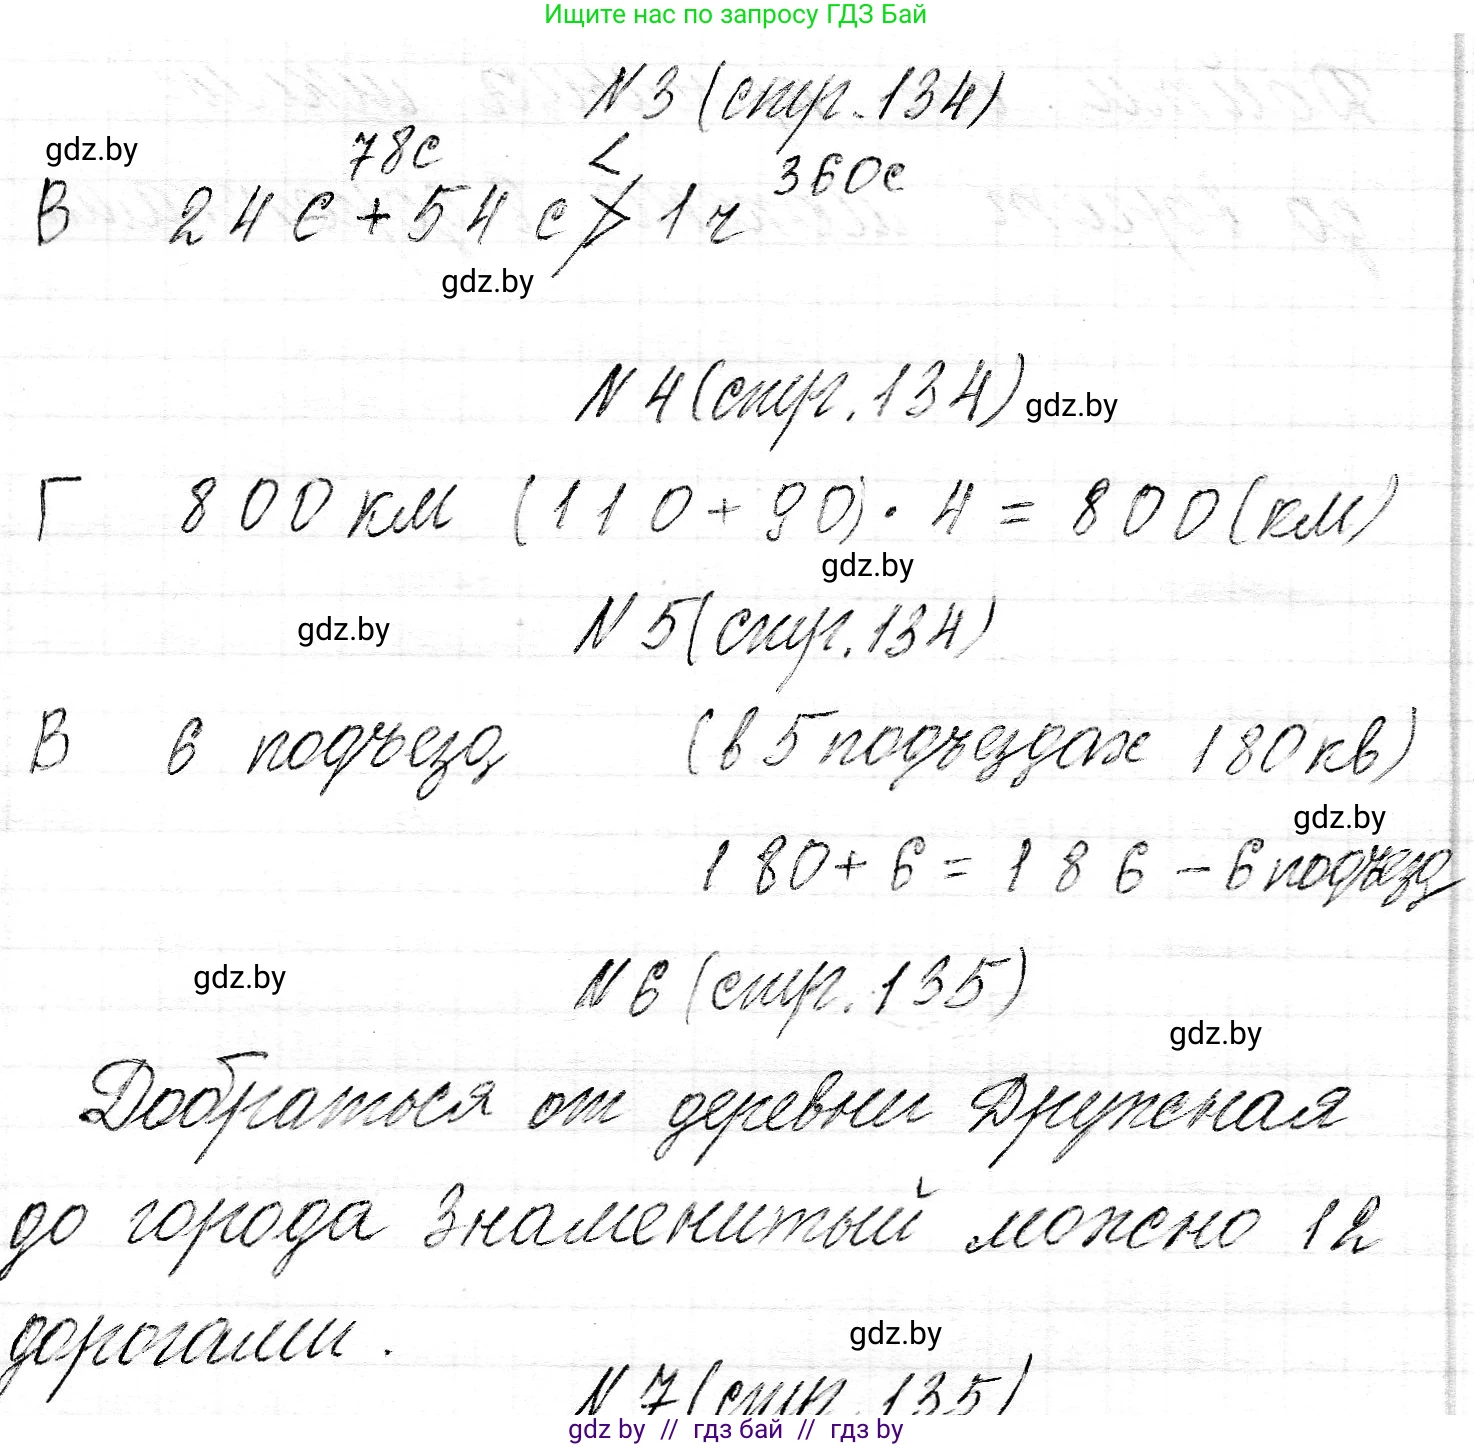 Ищите нас по запросу ГДЗ Бай
N 3 (стр. 134)
gdz.by
78с < 360с
В 24 с + 54 с > 1 ч
gdz.by
N 4 (стр. 134) gdz.by
Г 800 км (110 + 90) · 4 = 800 (км)
gdz.by
gdz.by N 5 (стр. 134)
В 6 подъезд (в 5 подъездах 180 кв)
gdz.by
180 + 6 = 186 – 6 подъезд
gdz.by N 6 (стр. 135)
gdz.by
Добраться от деревни Дружная
до города Знаменитый можно 12
дорогами.
gdz.by
N 7 (стр. 135)
gdz by // гдз бай // гдз by